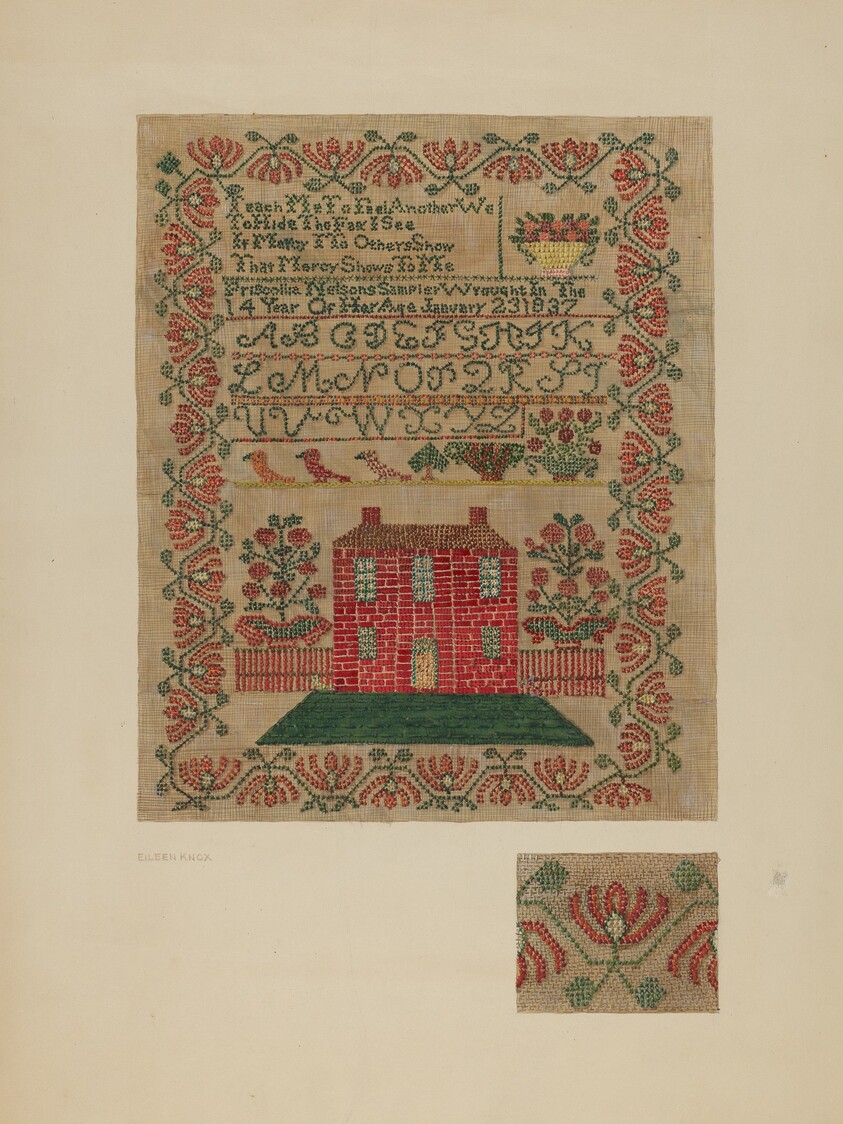 Teach Me To Feel Another We
To Hide The Faw I See
If Mercy Me Others Show
That Mercy Shows To Me
Priscolia Nelsons Sampler Wrought In The
14 Year Of Her Age January 23 1837
A B C D E F G H I K
L M N O P Q R S T
U V W X Y Z
EILEEN KNOX